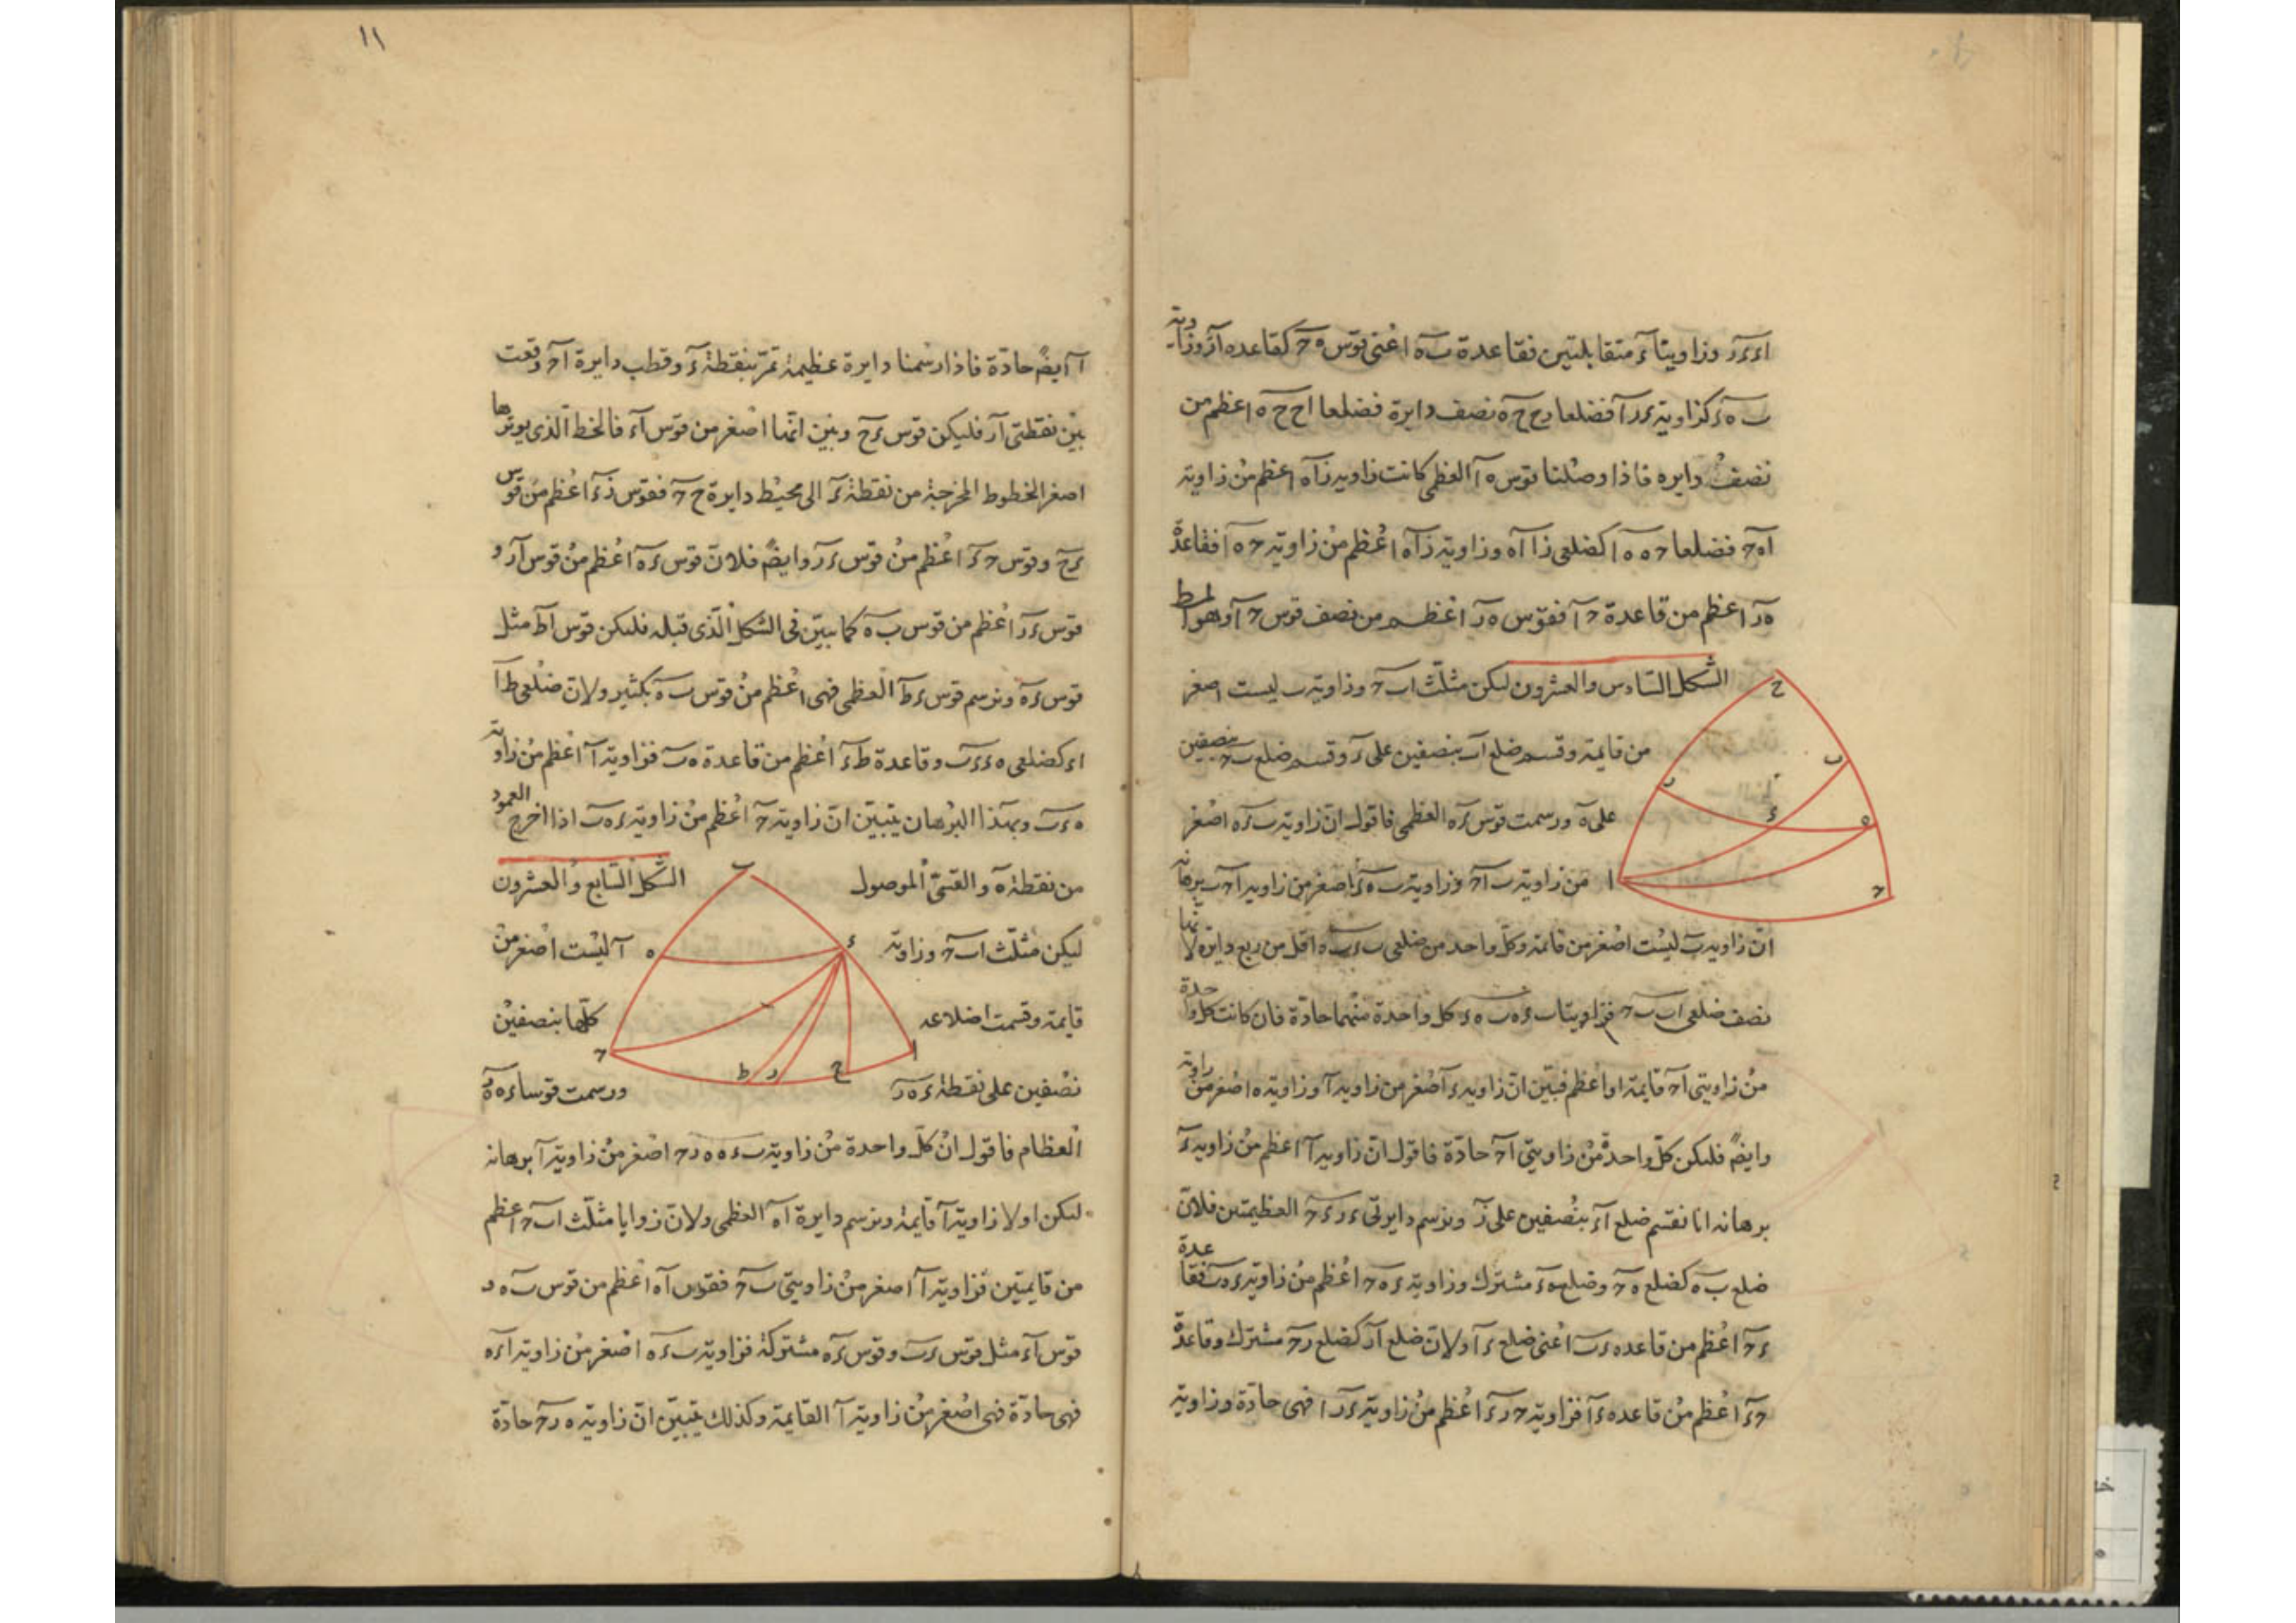 ا ء ء ر وزاويتا ء متقابلتين فقاعدة ب ه اعنى قوس ه ح كقاعدة ا ر وزاوية
ب ه ء كزاوية ء ر ا فضلعا ح ح ه نصف دايرة فضلعا ا ح ح ه اعظم من
نصف دايره فاذا وصلنا قوس ه ا العظمى كانت زاويه ر ا ه اعظم من زاوية
ا ه ح فضلعا ح ه ه ا كضلعى ر ا ا ه وزاوية ر ا ه اعظم من زاوية ح ه ا فقاعدة
ه ر اعظم من قاعدة ح ا فقوس ه ر اعظم من نصف قوس ح ا وهو المط
الشكل السادس والعشرون ليكن مثلث ا ب ح وزاوية ب ليست اصغر
من قايمة وقسم ضلع ا ب بنصفين على ء وقسم ضلع ب ح بنصفين
على ه ورسمت قوس ء ه العظمى فاقول ان زاوية ب ء ه اصغر
من زاوية ب ا ح وزاوية ب ه ء اصغر من زاوية ا ح ب برهانه
ان زاوية ب ليست اصغر من قايمة وكل واحد من ضلعى ب ء ب ه اقل من ربع دايرة لانهما
نصف ضلعى ا ب ب ح فزاويتا ب ء ه ب ه ء كل واحدة منهما حادة فان كانت كل واحدة
من زاويتى ا ح قايمة او اعظم فبين ان زاويه ء اصغر من زاويه ا وزاوية ه اصغر من زاوية
وايضً فليكن كل واحدة من زاويتى ا ح حادة فاقول ان زاوية ا اعظم من زاويه ء
برهانه انا نقسم ضلع ا ء بنصفين على ر ونرسم دايرتى ء ر ء ح العظيمتين فلان
ضلع ب ه كضلع ه ح وضلع ه ء مشترك وزاوية ء ه ح اعظم من زاوية ء ه ب فقاعدة
ء ح اعظم من قاعده ء ب اعنى ضلع ء ا ولان ضلع ا ر كضلع ر ح مشترك وقاعدة
ح ء اعظم من قاعده ء ا فزاوية ح ر ء اعظم من زاوية ء ر ا فهى حادة وزاوية
١١
ا ايضً حادة فاذا رسمنا دايرة عظيمة تمر بنقطة ء وقطب دايرة ا ح وقعت
بين نقطتى ا ر فليكن قوس ء ح وبين انها اصغر من قوس ا ء فالخط الذى يوترها
اصغر الخطوط المخرجة من نقطة ء الى محيط دايرة ح ح فقوس ر ء اعظم من قوس
ء ح وقوس ح ء اعظم من قوس ء ر وايضً فلان قوس ء ه اعظم من قوس ا ر و
قوس ء ر اعظم من قوس ب ه كما بين فى الشكل الذى قبله فليكن قوس ا ط مثل
قوس ء ه ونرسم قوس ء ط العظمى فهى اعظم من قوس ب ه بكثير ولان ضلعى ط ا
ا ء كضلعى ه ء ء ب وقاعدة ط ء اعظم من قاعدة ه ب فزاوية ا اعظم من زاوية
ه ء ب وبهذا البرهان يتبين ان زاوية ح اعظم من زاوية ء ه ب اذا اخرج العمود
من نقطة ه والقسى الموصول
الشكل السابع والعشرون
ليكن مثلث ا ب ح وزاوية ا ليست اصغر من
قايمة وقسمت اضلاعه كلها بنصفين
نصفين على نقطة ء ه ر ورسمت قوسا ء ه ه ر
العظام فاقول ان كل واحدة من زاوية ب ء ه ه ر ح اصغر من زاوية ا برهانه
ليكن اولا زاوية ا قايمة ونرسم دايرة ا ه العظمى ولان زوايا مثلث ا ب ح اعظم
من قايمتين فزاوية ا اصغر من زاويتى ب ح فقوس ا ه اعظم من قوس ب ه و
قوس ا ء مثل قوس ء ب وقوس ء ه مشتركة فزاوية ب ء ه اصغر من زاوية ا ء ه
فهى حادة فهى اصغر من زاوية ا القايمة وكذلك يتبين ان زاوية ه ر ح حادة